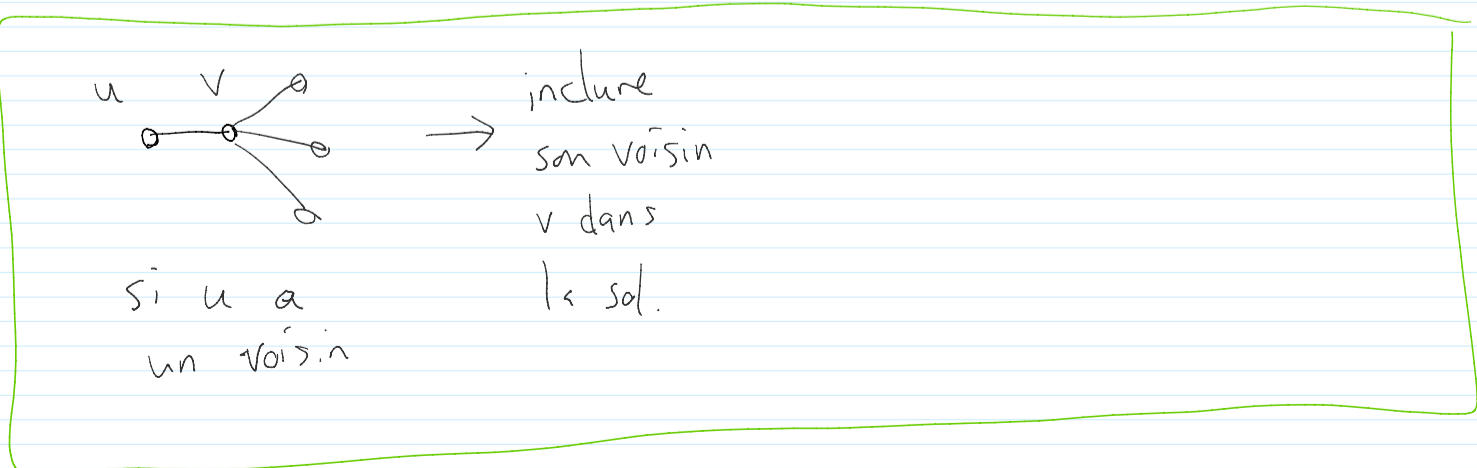 u v
si u a
un voisin
inclure
son voisin
v dans
la sol.